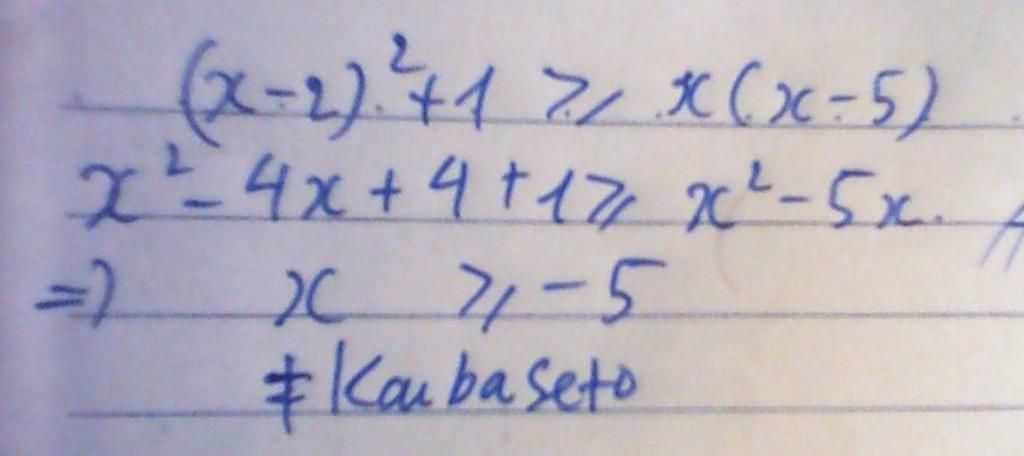 (x-2)²+1 ⩾ x(x-5)
x²-4x+4+1⩾ x²-5x.
=> x ⩾ -5
≠ Kaubaseto